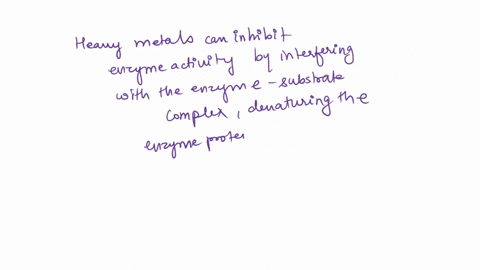 Heavy metals can inhibit
enzyme activity by interfering
with the enzyme-substrate
complex, denaturing the
enzyme protei